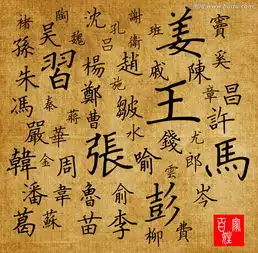 褚 陶 沈 謝 姜 竇
吳 魏 孔 衛 班
孫 習 呂 戚 奚
朱 楊 趙 陳 章 昌
馮 秦 鄭 施 皺 王 許
嚴 華 蔣 曹 水 錢 尤
韓 金 周 張 喻 雲 郎 馬
潘 韋 魯 俞 彭 岑
葛 蘇 苗 李 柳 費
百家姓